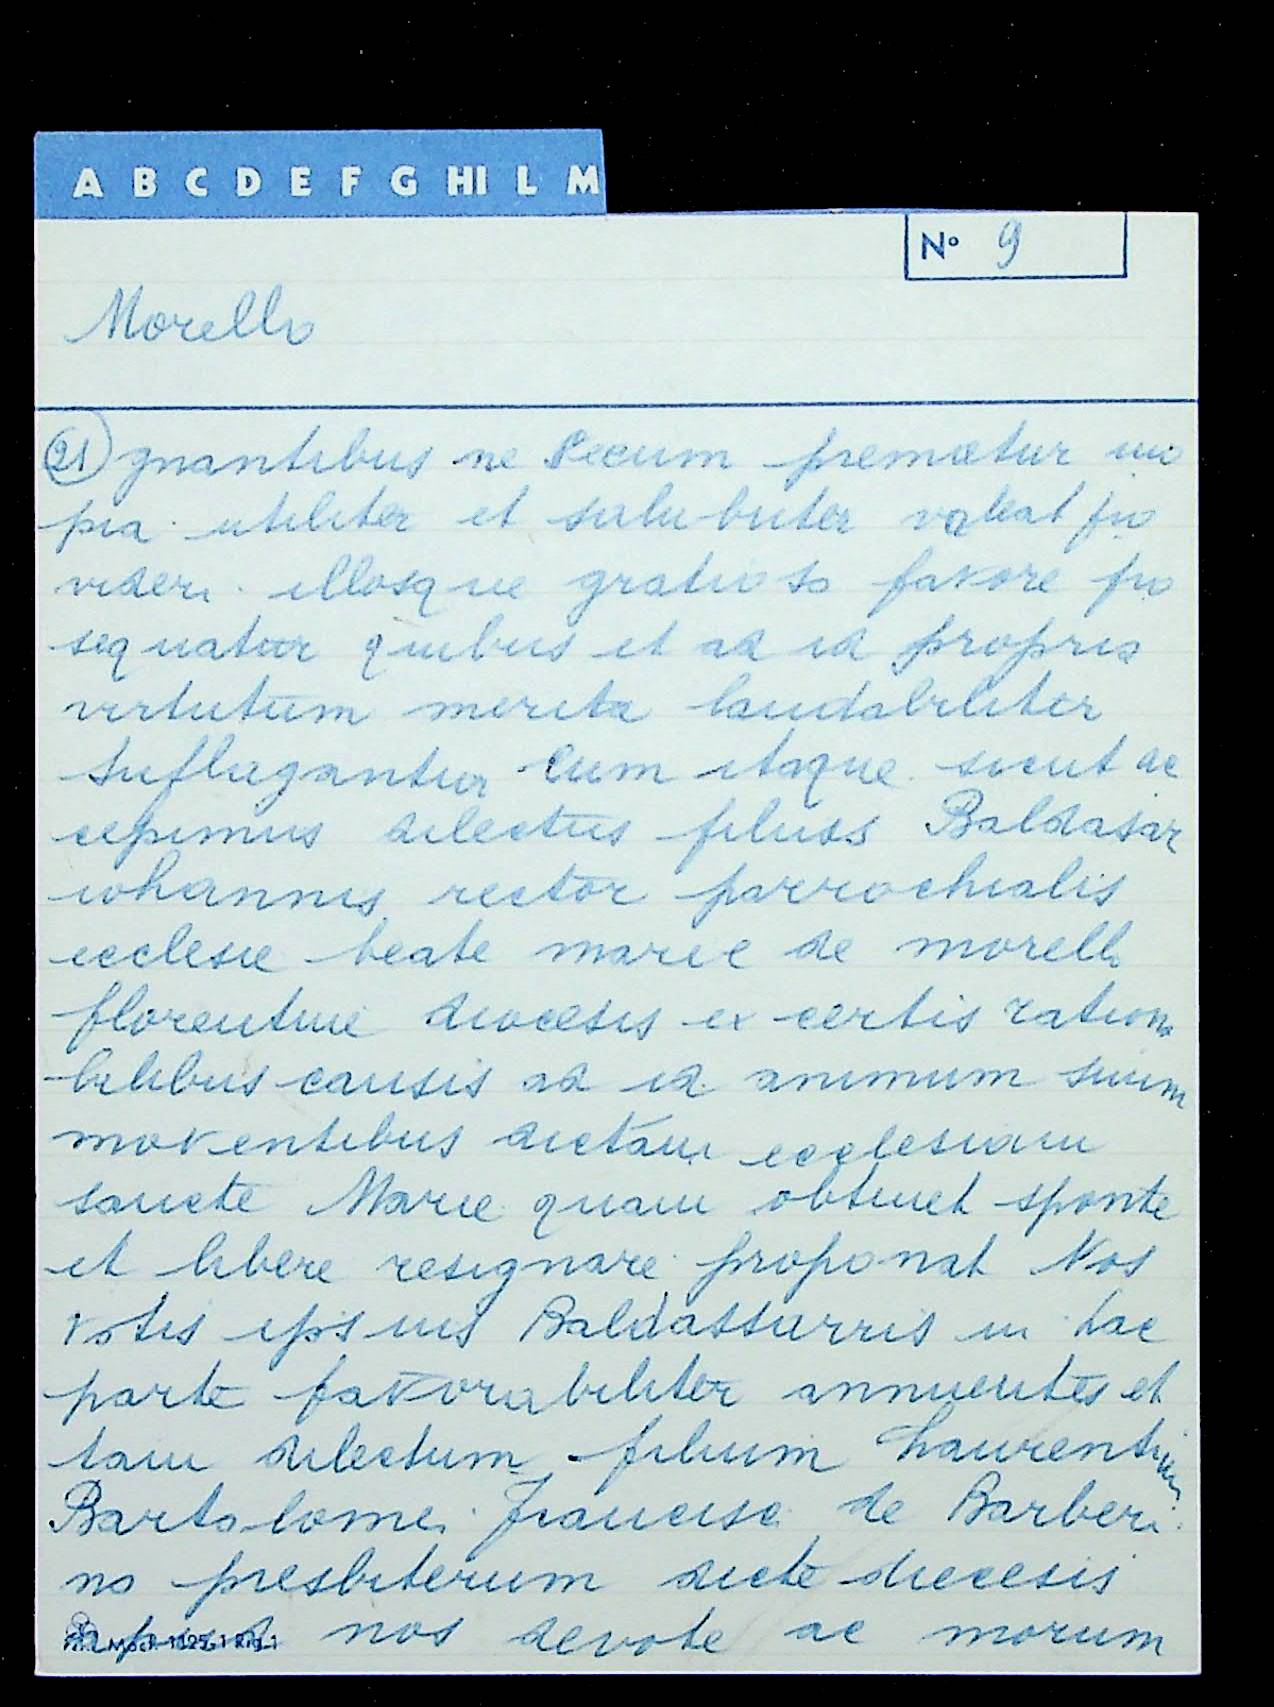 A B C D E F G HI L M
Nº 9
Morello
(21) gnantibus ne secum premetur ino
pia utiliter et salubriter valeat pro
videri illosque gratioso favore pro
sequatur quibus et ad id propria
virtutum merita laudabiliter
suffragantur Cum itaque sicut ac
cepimus dilectus filius Baldasar
iohannis rector parrochialis
ecclesie beate marie de morello
florentine diocesis ex certis rationa
bilibus causis ad id animum suum
moventibus dictam ecclesiam
sancte Marie quam obtinet sponte
et libere resignare proponat Nos
votis ipsius Baldassarris in hac
parte favorabiliter annuentes et
tam dilectum filium Laurentium
Bartolomei Francisci de Barberi
no presbiterum dicte diecesis
apud nos devote ac morum
Mod. 1125-1 Rig.1